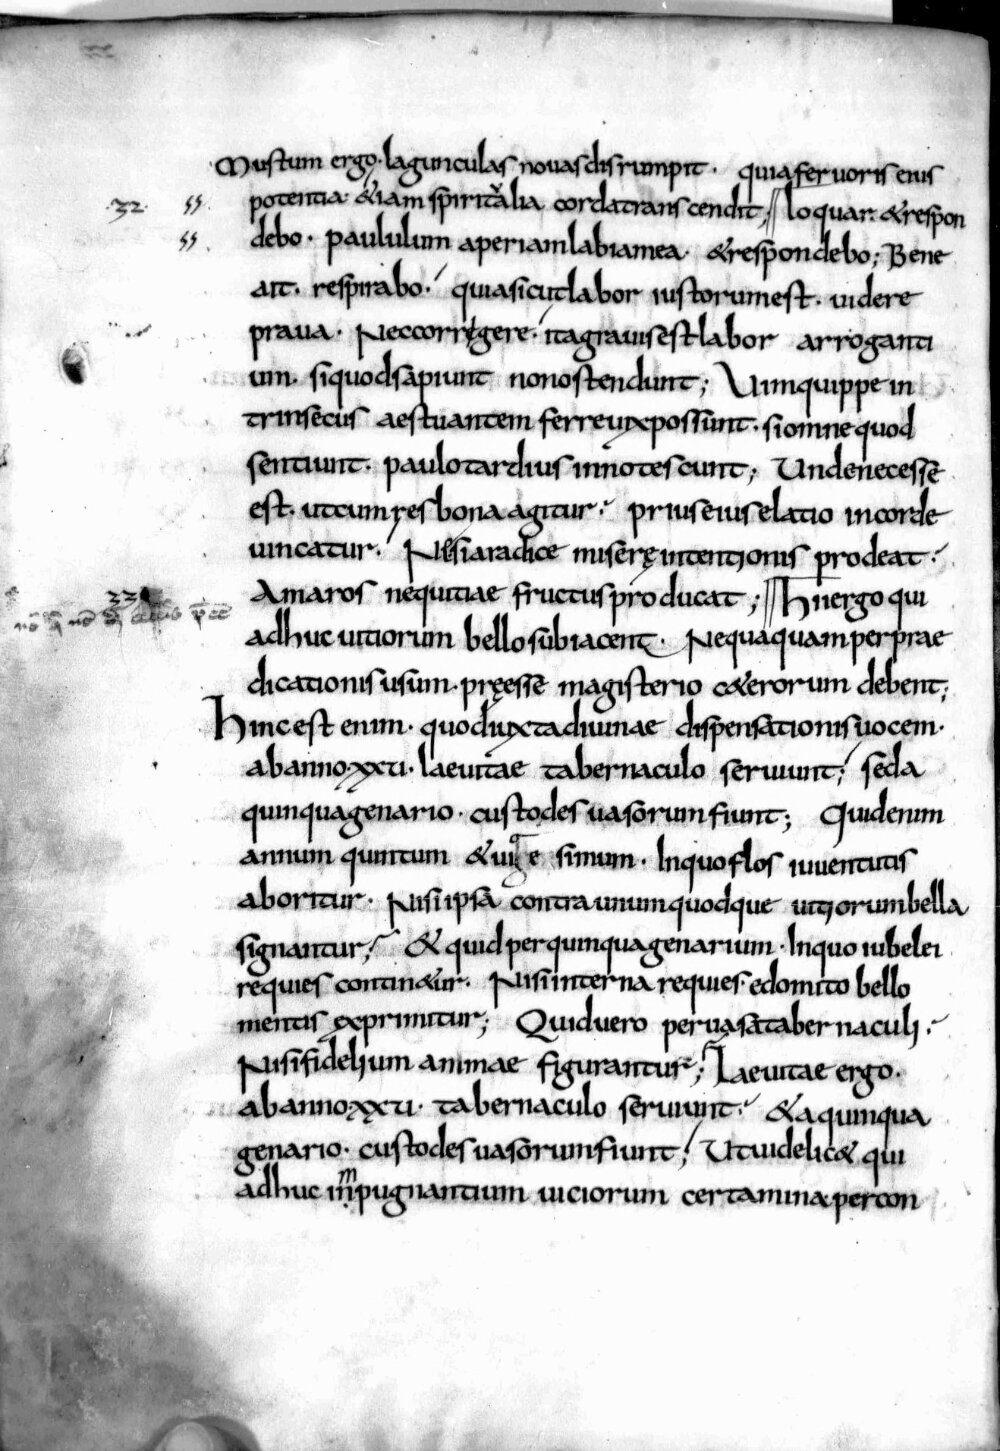 Mustum ergo· lagunculas nouas disrumpit· quia feruoris eius
32 potentia· &iam spiritalia corda transcendit; loquar· & respon
debo· paululum aperiam labia mea· & respondebo; Bene
ait· respirabo· quia sicut labor iustorum est· uidere
praua· Nec corrigere· ita grauis est labor arroganti
um· si quod sapiunt non ostendunt; Uim quippe in
trinsecus aestuantem ferre uix possunt· si omne quod
sentiunt· paulo tardius innotescunt; Unde necesse
est· ut cum res bona agitur· prius eius elatio in corde
uincatur· Ne si a radice miserę intentionis prodeat·
Amaros nequitiae fructus producat; Hii ergo qui
adhuc uitiorum bello subiacent· Nequaquam per prae
dicationis usum· pręesse magisterio c&erorum debent;
Hinc est enim· quod iuxta diuinae dispensationis uocem·
ab anno· xxu· laeuitae tabernaculo seruiunt; sed a
quinquagenario· custodes uasorum fiunt; Quid enim
annum quintum & uigesimum· In quo flos iuuentutis
aboritur· Nisi ipsa contra unumquodque uitiorum bella
signantur; & quid per quinquagenarium· In quo iubelei
requies contin&ur· Nisi interna requies· edomito bello
mentis exprimitur; Quid uero per uasa tabernaculi·
Nisi fidelium animae figurantur; Laeuitae ergo·
ab anno xxu· tabernaculo seruiunt· & a quinqua
genario· custodes uasorum fiunt; Ut uidelic& qui
adhuc impugnantium uiciorum certamina per con